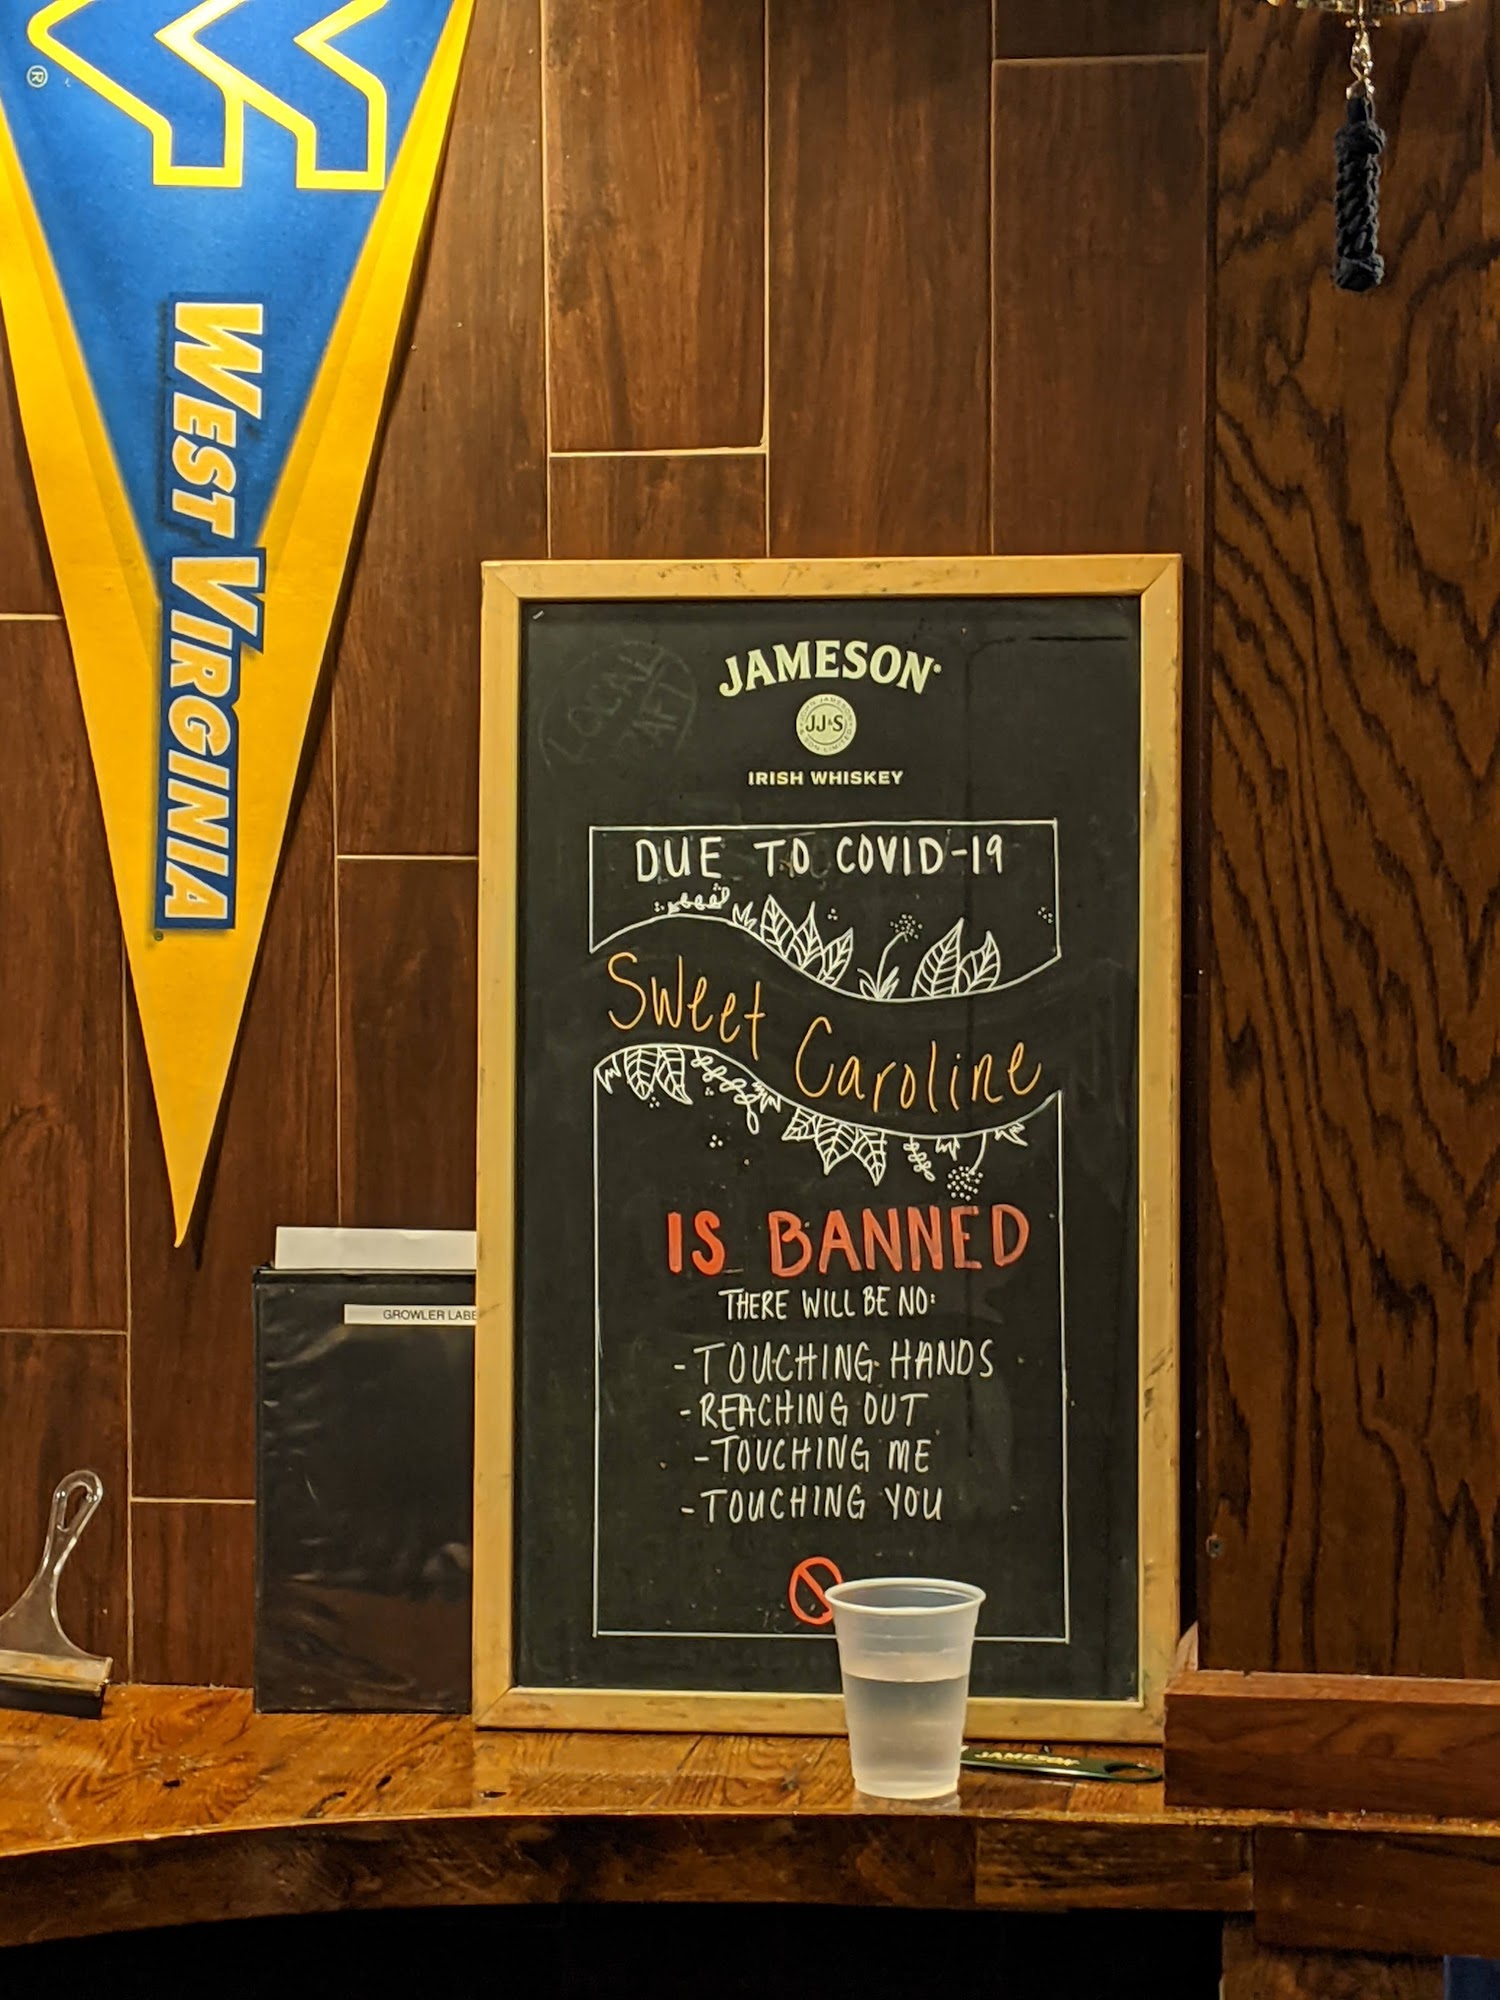 ®
WEST VIRGINIA
LOCAL
JAMESON
JOHN JAMESON
JJ&S
& SON LIMITED
IRISH WHISKEY
DUE TO COVID-19
Sweet Caroline
IS BANNED
THERE WILL BE NO:
- TOUCHING HANDS
- REACHING OUT
- TOUCHING ME
- TOUCHING YOU
GROWLER LABE
JAMESON